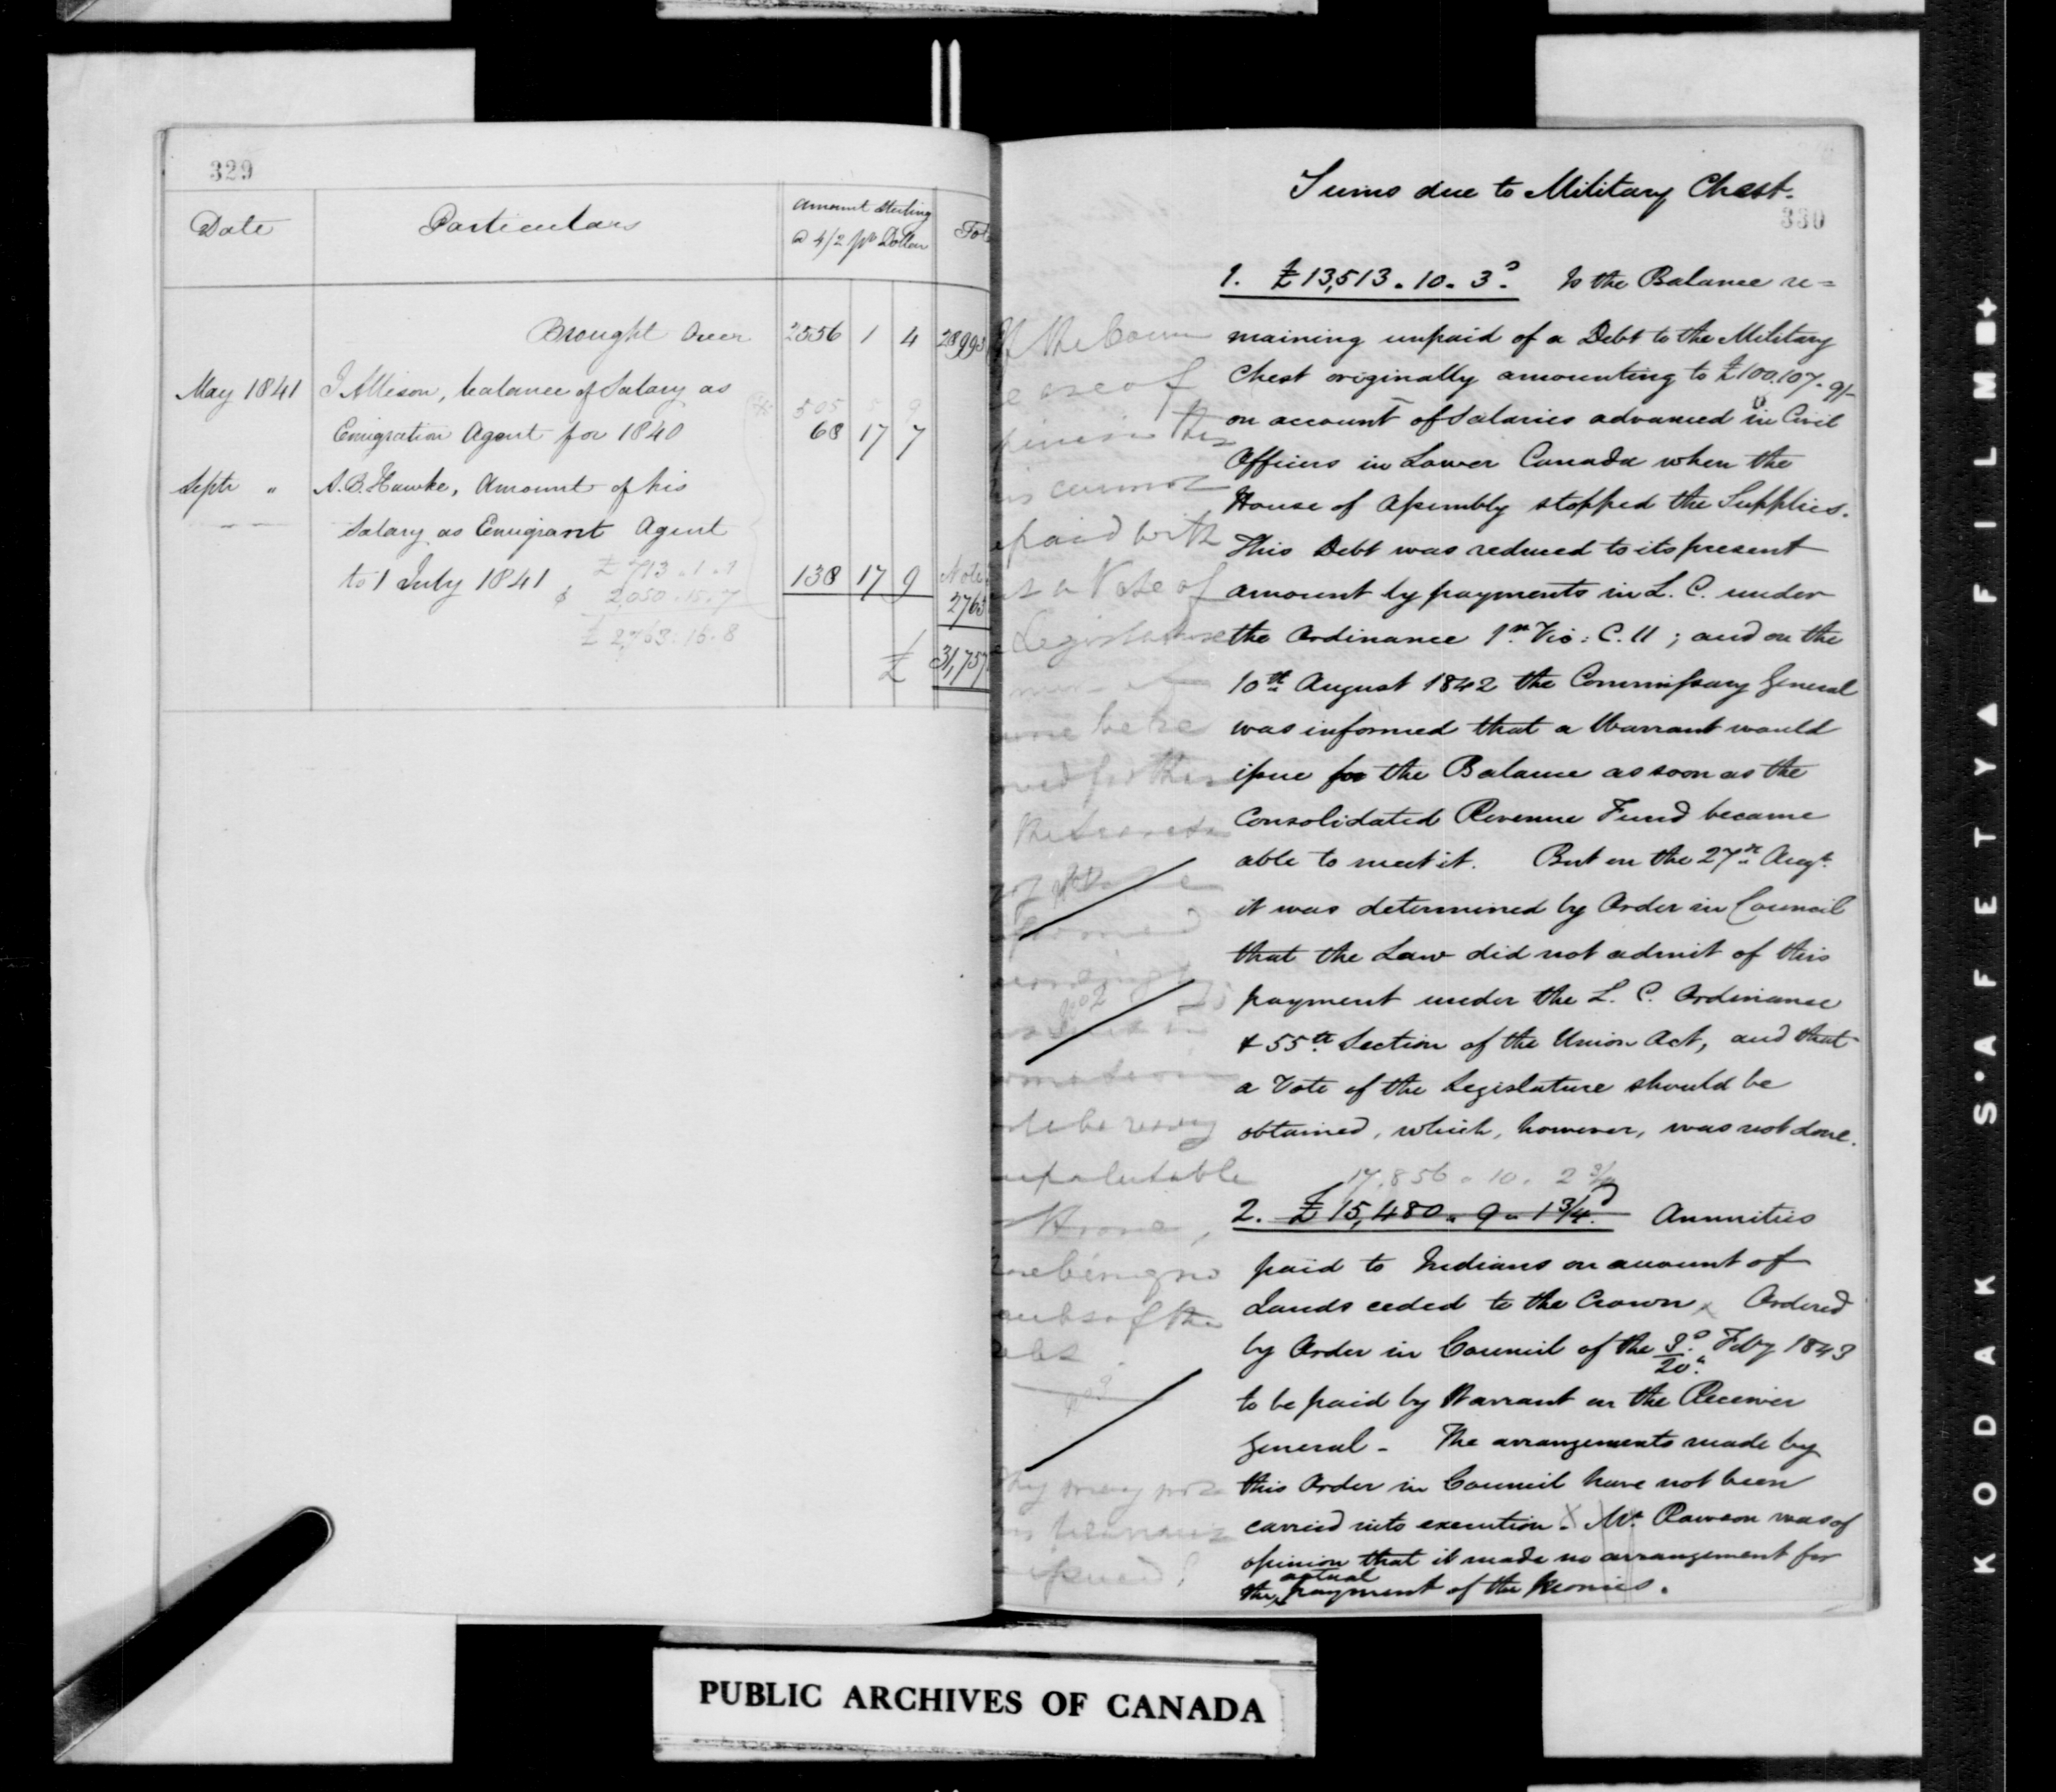 329
Date
Particulars
Amount Sterling
@ 4/2 pr Dollar
Brought Over 2556 1 4 28993
May 1841
J Allison, balance of Salary as
505 5 9
Emigration Agent for 1840 68 17 7
Septr "
A.B. Hawke, Amount of his
Salary as Emigrant Agent
to 1 July 1841 138 17 9
£ 713.1.1
2,050.15.7
£ 2,763.16.8
Note
2763
£ 31,757
Sums due to Military Chest.
330
1. £13,513.10.3. Is the Balance re=
maining unpaid of a Debt to the Military
Chest originally amounting to £100,107.9/-
on account of Salaries advanced to Civil
Officers in Lower Canada when the
House of Assembly stopped the Supplies.
This Debt was reduced to its present
amount by payments in L. C. under
the Ordinance 1st Vic: C. 11; and on the
10th August 1842 the Commissary General
was informed that a Warrant would
issue for the Balance as soon as the
Consolidated Revenue Fund became
able to meet it. But on the 27th Augt.
it was determined by Order in Council
that the Law did not admit of this
payment under the L. C. Ordinance
& 55th Section of the Union Act, and that
a Vote of the Legislature should be
obtained, which, however, was not done.
17,856.10.2 3/4
2. £15,480.9.1 3/4 Annuities
paid to Indians on account of
Lands ceded to the Crown x Ordered
by Order in Council of the 3d/20th Feby 1843
to be paid by Warrant on the Receiver
General - The arrangements made by
this Order in Council have not been
carried into execution. X Mr. Rawson was of
opinion that it made no arrangement for
the actual payment of the Monies.
the Crown
use of
this
cannot
paid with
a Vote of
Legislature
no 2
unpalatable
being no
of the
may not
issued?
PUBLIC ARCHIVES OF CANADA
KODAK S·AFETY▲FILM■+